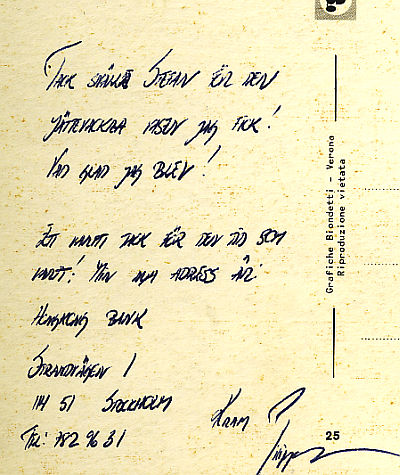 Tack snälla Stefan för den
jättevackra vasen jag fick!
Vad glad jag blev!
Ett varmt tack för den tid som
varit! Min nya adress är:
Hongkong Bank
Strandvägen 1
114 51 Stockholm
Tel: 782 96 31
Kram
Grafiche Biondetti - Verona
Riproduzione vietata
25